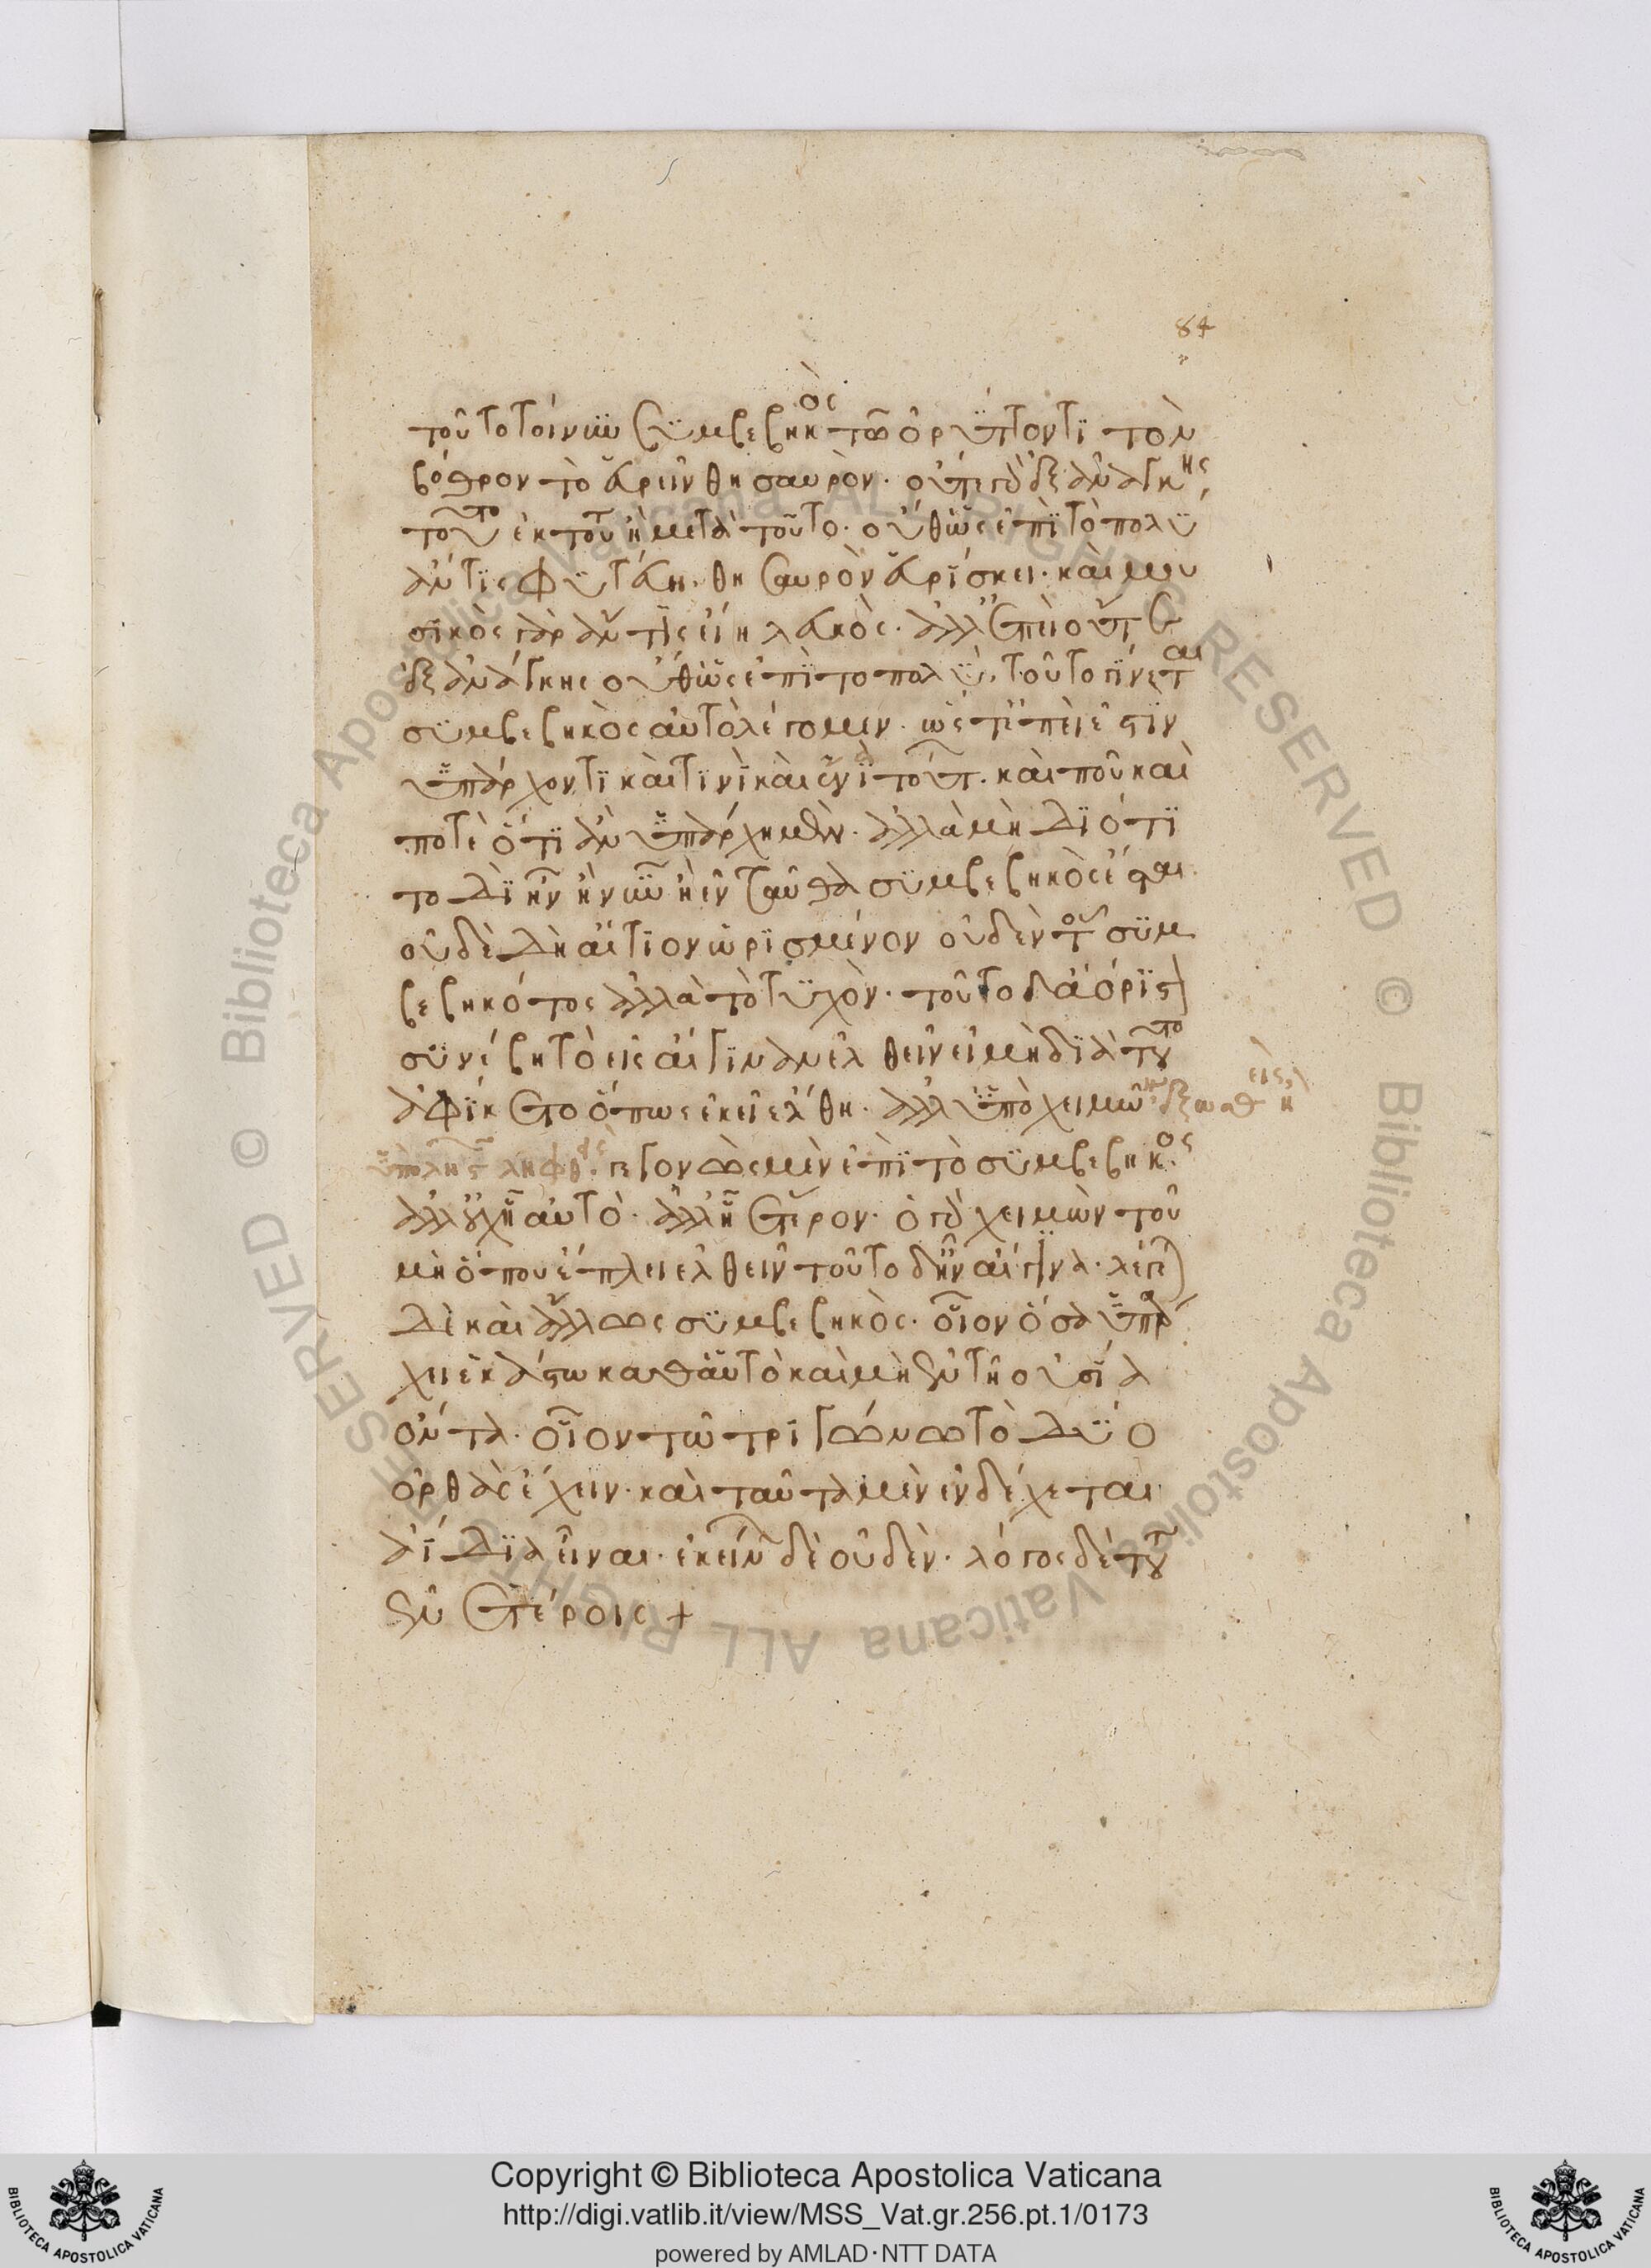 84
τοῦτο τοίνυν συμβεβηκὸς τῶ ὀρύττοντι τὸν
βόθρον τὸ εὑρεῖν θησαυρὸν. οὔτε γὰρ ἐξ ἀνάγκης
τοῦτο ἐκ τούτου ἢ μετὰ τοῦτο. οὔθ' ὡς ἐπὶ τὸ πολὺ
ἄν τις φυτεύη. θησαυρὸν εὑρίσκει. καὶ μου
σικὸς γὰρ ἄν τις εἴη λευκὸς. ἀλλ' ἐπεὶ οὔτε
ἐξ ἀνάγκης οὔθ' ὡς ἐπὶ το πολὺ, τοῦτο γίνεται
συμβεβηκὸς αὐτὸ λέγομεν. ὡς τ' ἐπεὶ ἐστὶν
ὑπάρχον τὶ καὶ τινὶ καὶ ἔνια τούτ. καὶ ποῦ καὶ
ποτὲ ὅτι ἂν ὑπάρχη μὲν. ἀλλὰ μὴ διότι
το δὶ ἦν ἢ νῦν ἢ ἐνταῦθα συμβεβηκὸς ἔσται.
οὐδὲ δὴ αἴτιον ὡρισμένον οὐδὲν τοῦ συμ
βεβηκότος ἀλλὰ τὸ τυχὸν. τοῦτο δ' ἀόριστ
συνέβη τὸ εἰς αἴγιναν ἐλθεῖν εἰ μὴ διὰ τοῦτο
ἀφίκετο ὅπως ἐκεῖ ἔλθη. ἀλλ' ὑπὸ χειμῶνος ἐξωσθεὶς, ἢ
ὑπὸ ληστῶν ληφθεὶς. γέγονε μὲν ἐπὶ τὸ συμβεβηκός
ἀλλ' οὐχ ἧ αὐτὸ. ἀλλ' ἧ ἕτερον. ὁ γὰρ χειμὼν τοῦ
μὴ ὅπου ἔπλει ἐλθεῖν τοῦτο δ' ἦν αἴγινα. λέγε
δὲ καὶ ἄλλως συμβεβηκὸς. οἷον ὅσα ὑπάρ
χει ἑκάστω καθ' αὑτὸ καὶ μὴ ἐν τῆ οὐσία
ὄντα. οἷον τῶ τριγώνω τὸ δύο
ὀρθὰς ἔχειν. καὶ ταῦτα μὲν ἐνδέχεται
ἀΐδια εἶναι. ἐκείνων δὲ οὐδὲν. λόγος δὲ τούτου
ἐν ἑτέροις +
Copyright © Biblioteca Apostolica Vaticana
http://digi.vatlib.it/view/MSS_Vat.gr.256.pt.1/0173
powered by AMLAD·NTT DATA